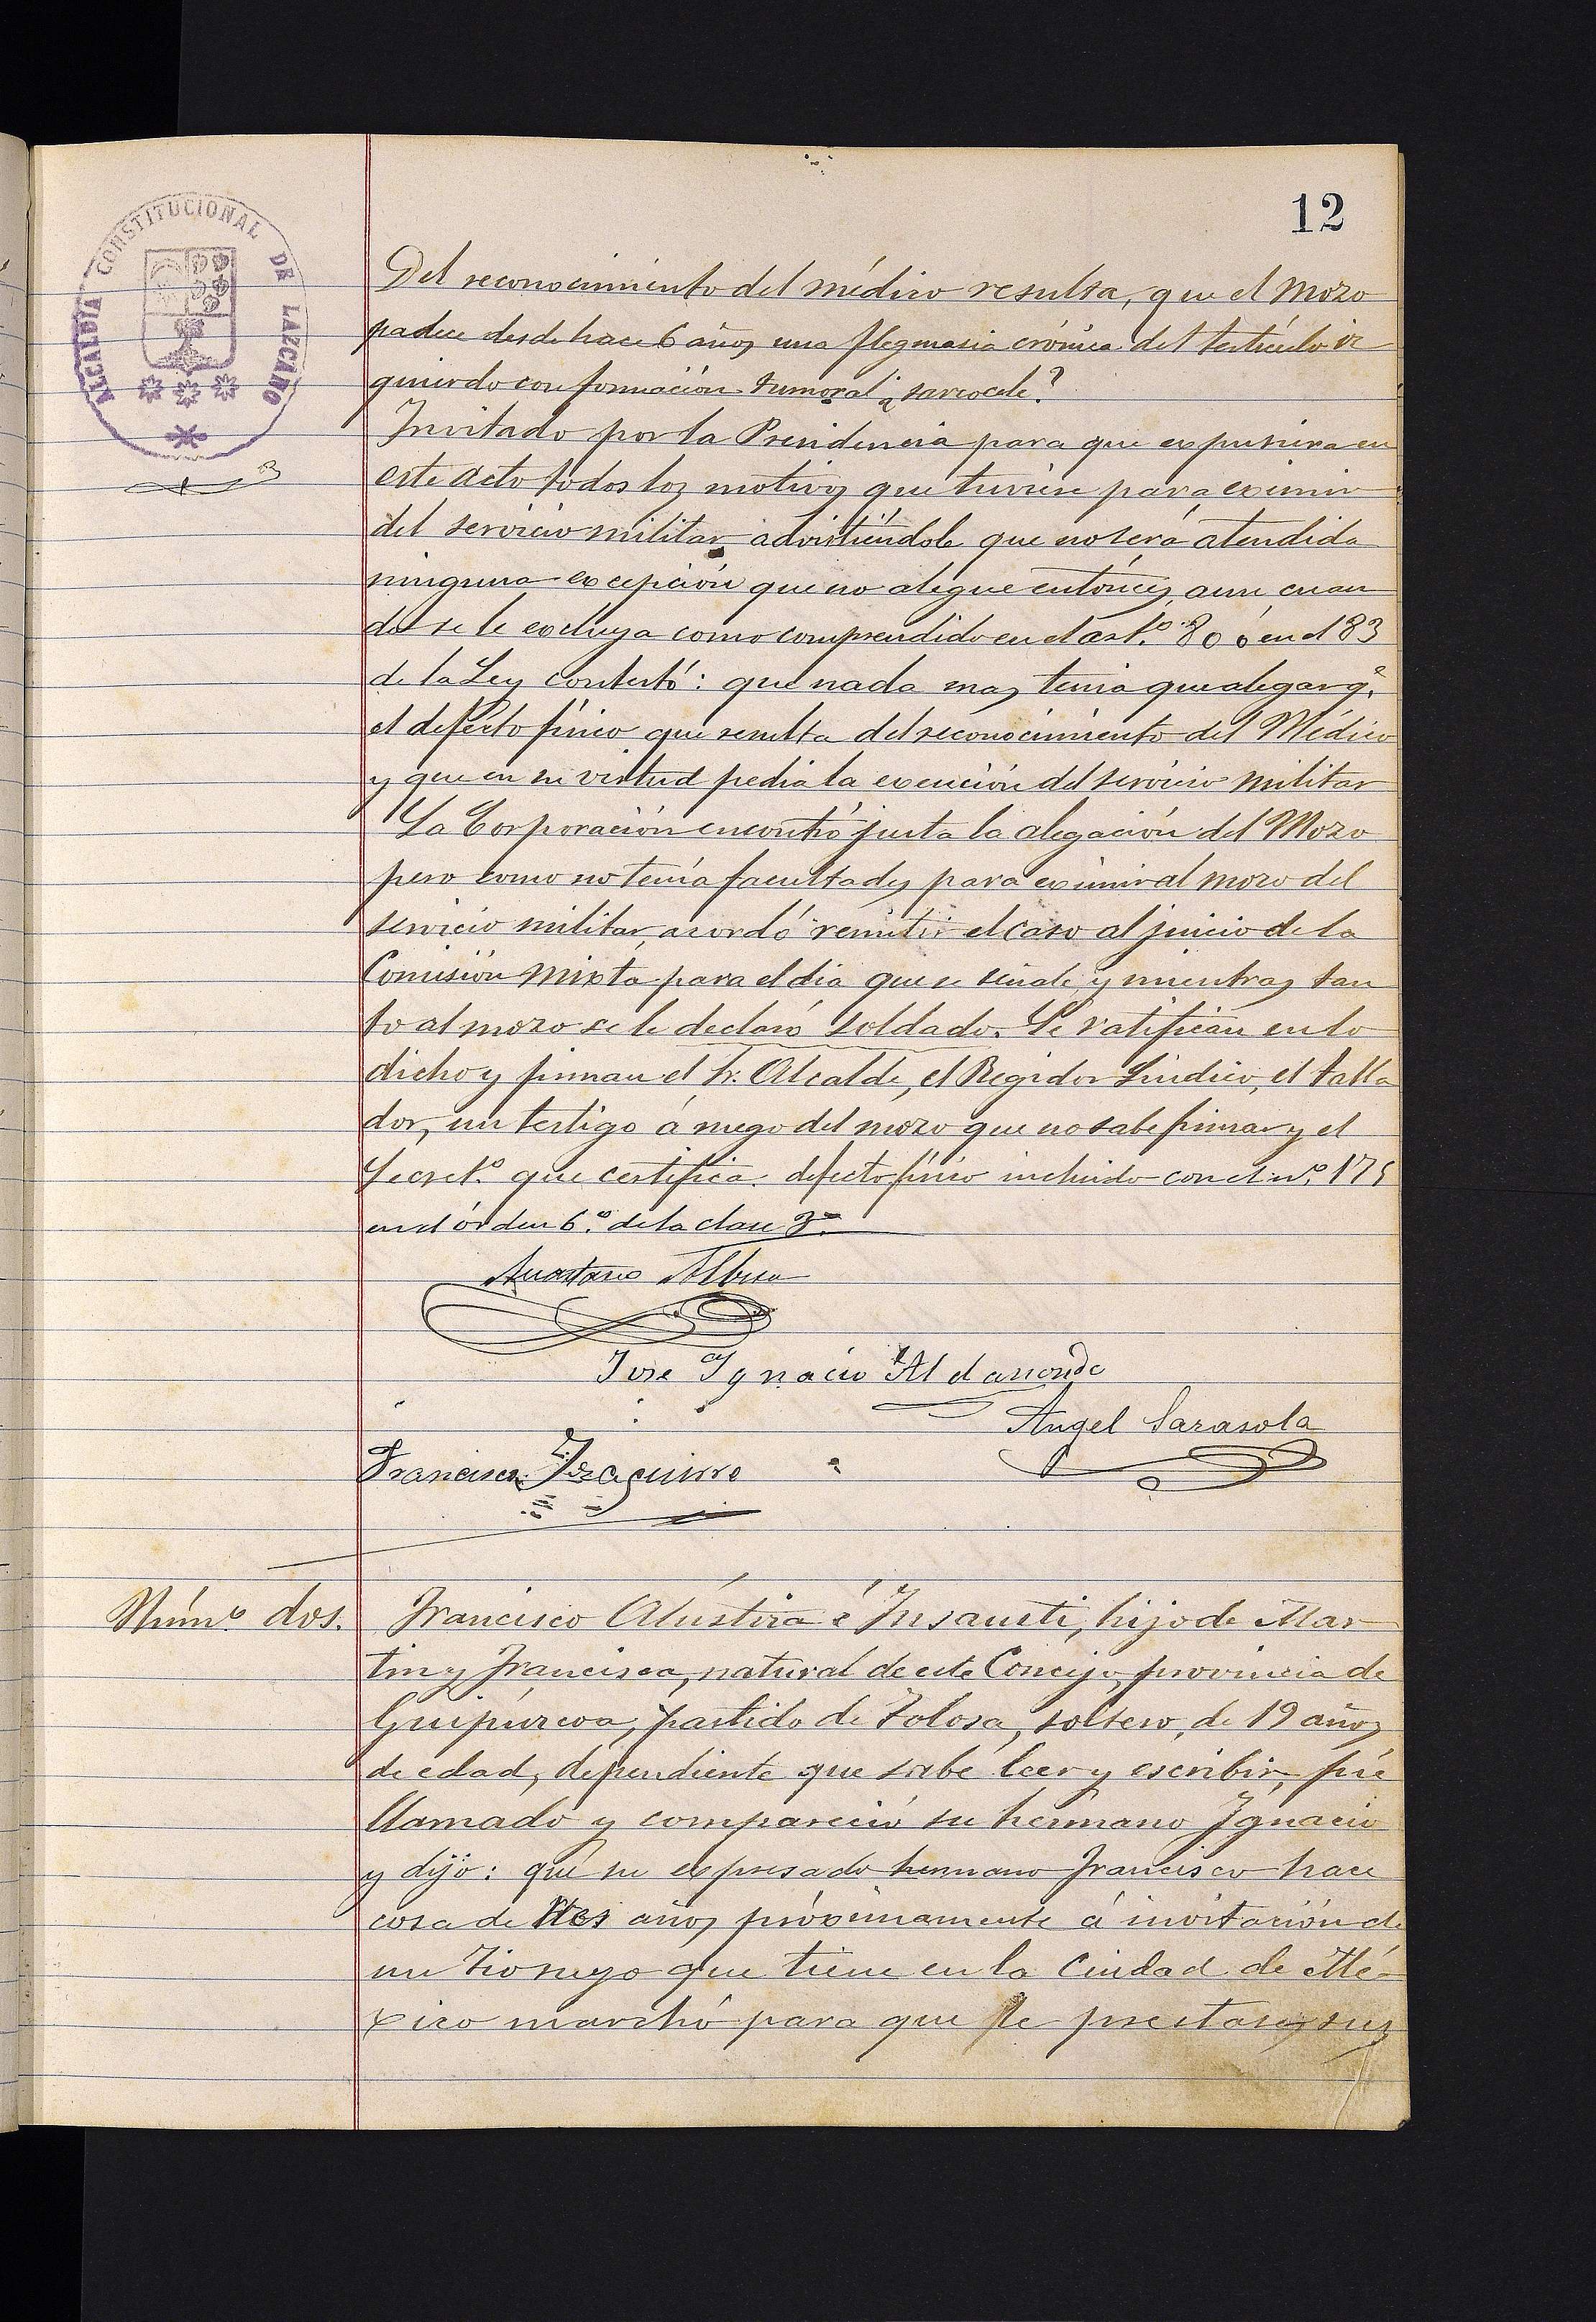 12
ALCALDÍA CONSTITUCIONAL DE LAZCANO
Del reconocimiento del médico resulta, que el Mozo
padece desde hace 6 años una flegmasia crónica del testículo iz
quierdo con formación tumoral ¿sarcocele?
Invitado por la Presidencia para que expusiera en
este acto todos los motivos que tuviese para eximir
del servicio militar advirtiéndole que no será atendida
ninguna excepción que no alegue entónces, aun cuan
do se le excluya como comprendido en el art.º 80 ó en el 83
de la Ley contestó: que nada mas tenia que alegar q.e
el defecto físico que resulta del reconocimiento del Médico
y que en su virtud pedia la exención del servicio militar
La Corporación encontró justa la alegación del Mozo
pero como no tenía facultades para eximir al mozo del
servicio militar, acordó remitir el caso al juicio de la
Comisión Mixta para el dia que se señale, y mientras tan
to al mozo se le declaró soldado. Se ratifican en lo
dicho y firman el Sr. Alcalde, el Regidor Síndico, el talla
dor, un testigo á ruego del mozo que no sabe firmar y el
Secret.º que certifica. defecto físico incluido con el n.º 175
en el órden 6.º de la clase 3ª
Anastasio Albisu
José Ignacio Aldasoro
Angel Sarasola
Francisco Izaguirre
Núm.º dos.
Francisco Alústiza é Insausti, hijo de Mar
tin y Francisca, natural de este Concejo, provincia de
Guipúzcoa, partido de Tolosa, soltero, de 19 años
de edad, dependiente que sabe leer y escribir, fué
llamado y compareció su hermano Ignacio
y dijo: que su expresado hermano Francisco hace
cosa de tres años próximamente á invitación de
un Tio suyo que tiene en la Ciudad de Mé-
xico marchó para que le prestase sus